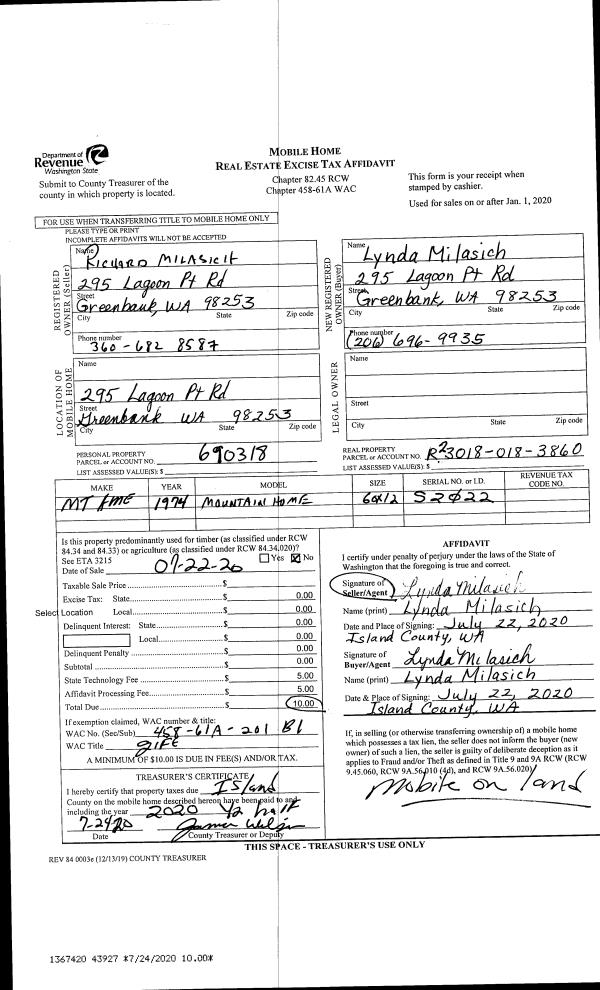 Department of
Revenue
Washington State
Submit to County Treasurer of the
county in which property is located.
MOBILE HOME
REAL ESTATE EXCISE TAX AFFIDAVIT
Chapter 82.45 RCW
Chapter 458-61A WAC
This form is your receipt when
stamped by cashier.
Used for sales on or after Jan. 1, 2020
FOR USE WHEN TRANSFERRING TITLE TO MOBILE HOME ONLY
PLEASE TYPE OR PRINT
INCOMPLETE AFFIDAVITS WILL NOT BE ACCEPTED
REGISTERED
OWNER (Seller)
Name
RICHARD MILASICH
295 Lagoon Pt Rd
Street
Greenbank, WA 98253
City State Zip code
Phone number
360-682 8587
NEW REGISTERED
OWNER (Buyer)
Name
Lynda Milasich
295 Lagoon Pt Rd
Street
Greenbank, WA 98253
City State Zip code
Phone number
(206) 696-9935
LOCATION OF
MOBILE HOME
Name
295 Lagoon Pt Rd
Street
Greenbank WA 98253
City State Zip code
LEGAL OWNER
Name
Street
City State Zip code
PERSONAL PROPERTY
PARCEL or ACCOUNT NO. 690318
LIST ASSESSED VALUE(S): $
REAL PROPERTY
PARCEL or ACCOUNT NO. R23018-018-3860
LIST ASSESSED VALUE(S): $
MAKE YEAR MODEL SIZE SERIAL NO. or I.D. REVENUE TAX CODE NO.
MT 1974 MOUNTAIN HOME 60X12 S2022
Is this property predominantly used for timber (as classified under RCW
84.34 and 84.33) or agriculture (as classified under RCW 84.34.020)?
See ETA 3215 Yes No
Date of Sale 07-22-20
Taxable Sale Price $
Excise Tax: State $ 0.00
Select Location Local $ 0.00
Delinquent Interest: State $ 0.00
Local $ 0.00
Delinquent Penalty $ 0.00
Subtotal $ 0.00
State Technology Fee $ 5.00
Affidavit Processing Fee $ 5.00
Total Due $ 10.00
If exemption claimed, WAC number & title:
WAC No. (Sec/Sub) 458-61A-201 B1
WAC Title GIFT
A MINIMUM OF $10.00 IS DUE IN FEE(S) AND/OR TAX.
TREASURER'S CERTIFICATE
I hereby certify that property taxes due Island
County on the mobile home described hereon have been paid to and
including the year 2020 1/2 half
7-24-20
Date County Treasurer or Deputy
AFFIDAVIT
I certify under penalty of perjury under the laws of the State of
Washington that the foregoing is true and correct.
Signature of
Seller/Agent Lynda Milasich
Name (print) Lynda Milasich
Date and Place of Signing: July 22, 2020
Island County, WA
Signature of
Buyer/Agent Lynda Milasich
Name (print) Lynda Milasich
Date & Place of Signing: July 22, 2020
Island County, WA
If, in selling (or otherwise transferring ownership of) a mobile home
which possesses a tax lien, the seller does not inform the buyer (new
owner) of such a lien, the seller is guilty of deliberate deception as it
applies to Fraud and/or Theft as defined in Title 9 and 9A RCW (RCW
9.45.060, RCW 9A.56.010 (4d), and RCW 9A.56.020)
Mobile on land
THIS SPACE - TREASURER'S USE ONLY
REV 84 0003e (12/13/19) COUNTY TREASURER
1367420 43927 *7/24/2020 10.00*